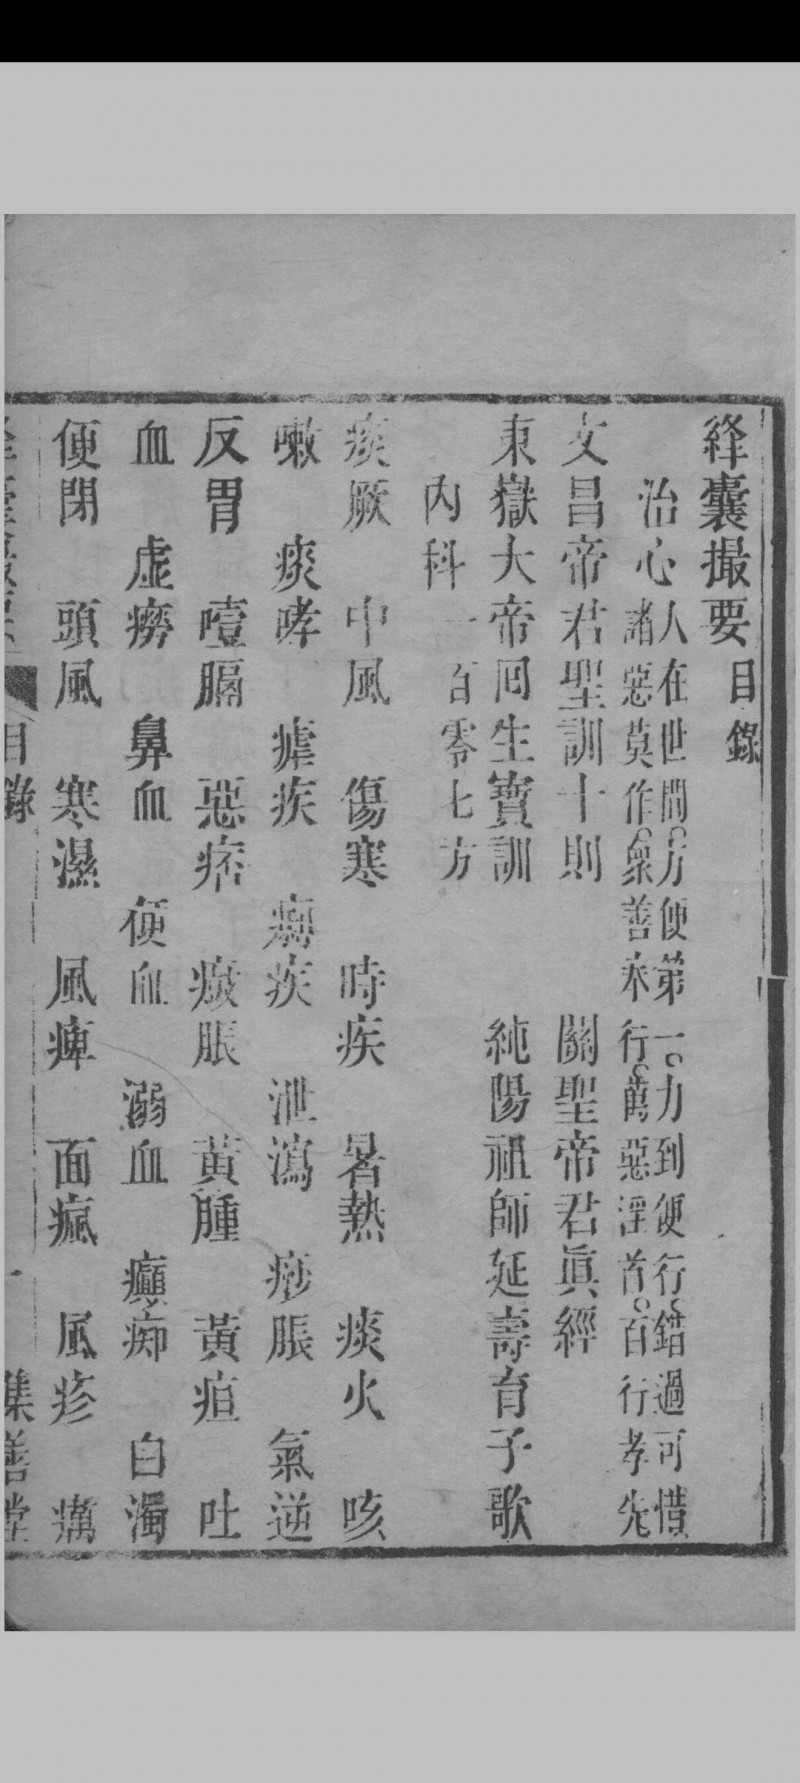 絳囊撮要目錄
治心人在世間方便第一力到便行錯過可惜
諸惡莫作眾善奉行萬惡淫首百行孝先
文昌帝君聖訓十則　關聖帝君真經
東嶽大帝回生寶訓　純陽祖師延壽育子歌
內科一百零七方
痰厥　中風　傷寒　時疾　暑熱　痰火　咳
嗽　痰哮　瘧疾　痢疾　泄瀉　痧脹　氣逆
反胃　噎膈　惡痞　癥脹　黃腫　黃疸　吐
血　虛癆　鼻血　便血　溺血　癲痴　白濁
便閉　頭風　寒濕　風痺　面瘋　風疹　癘
目錄　一　集善堂